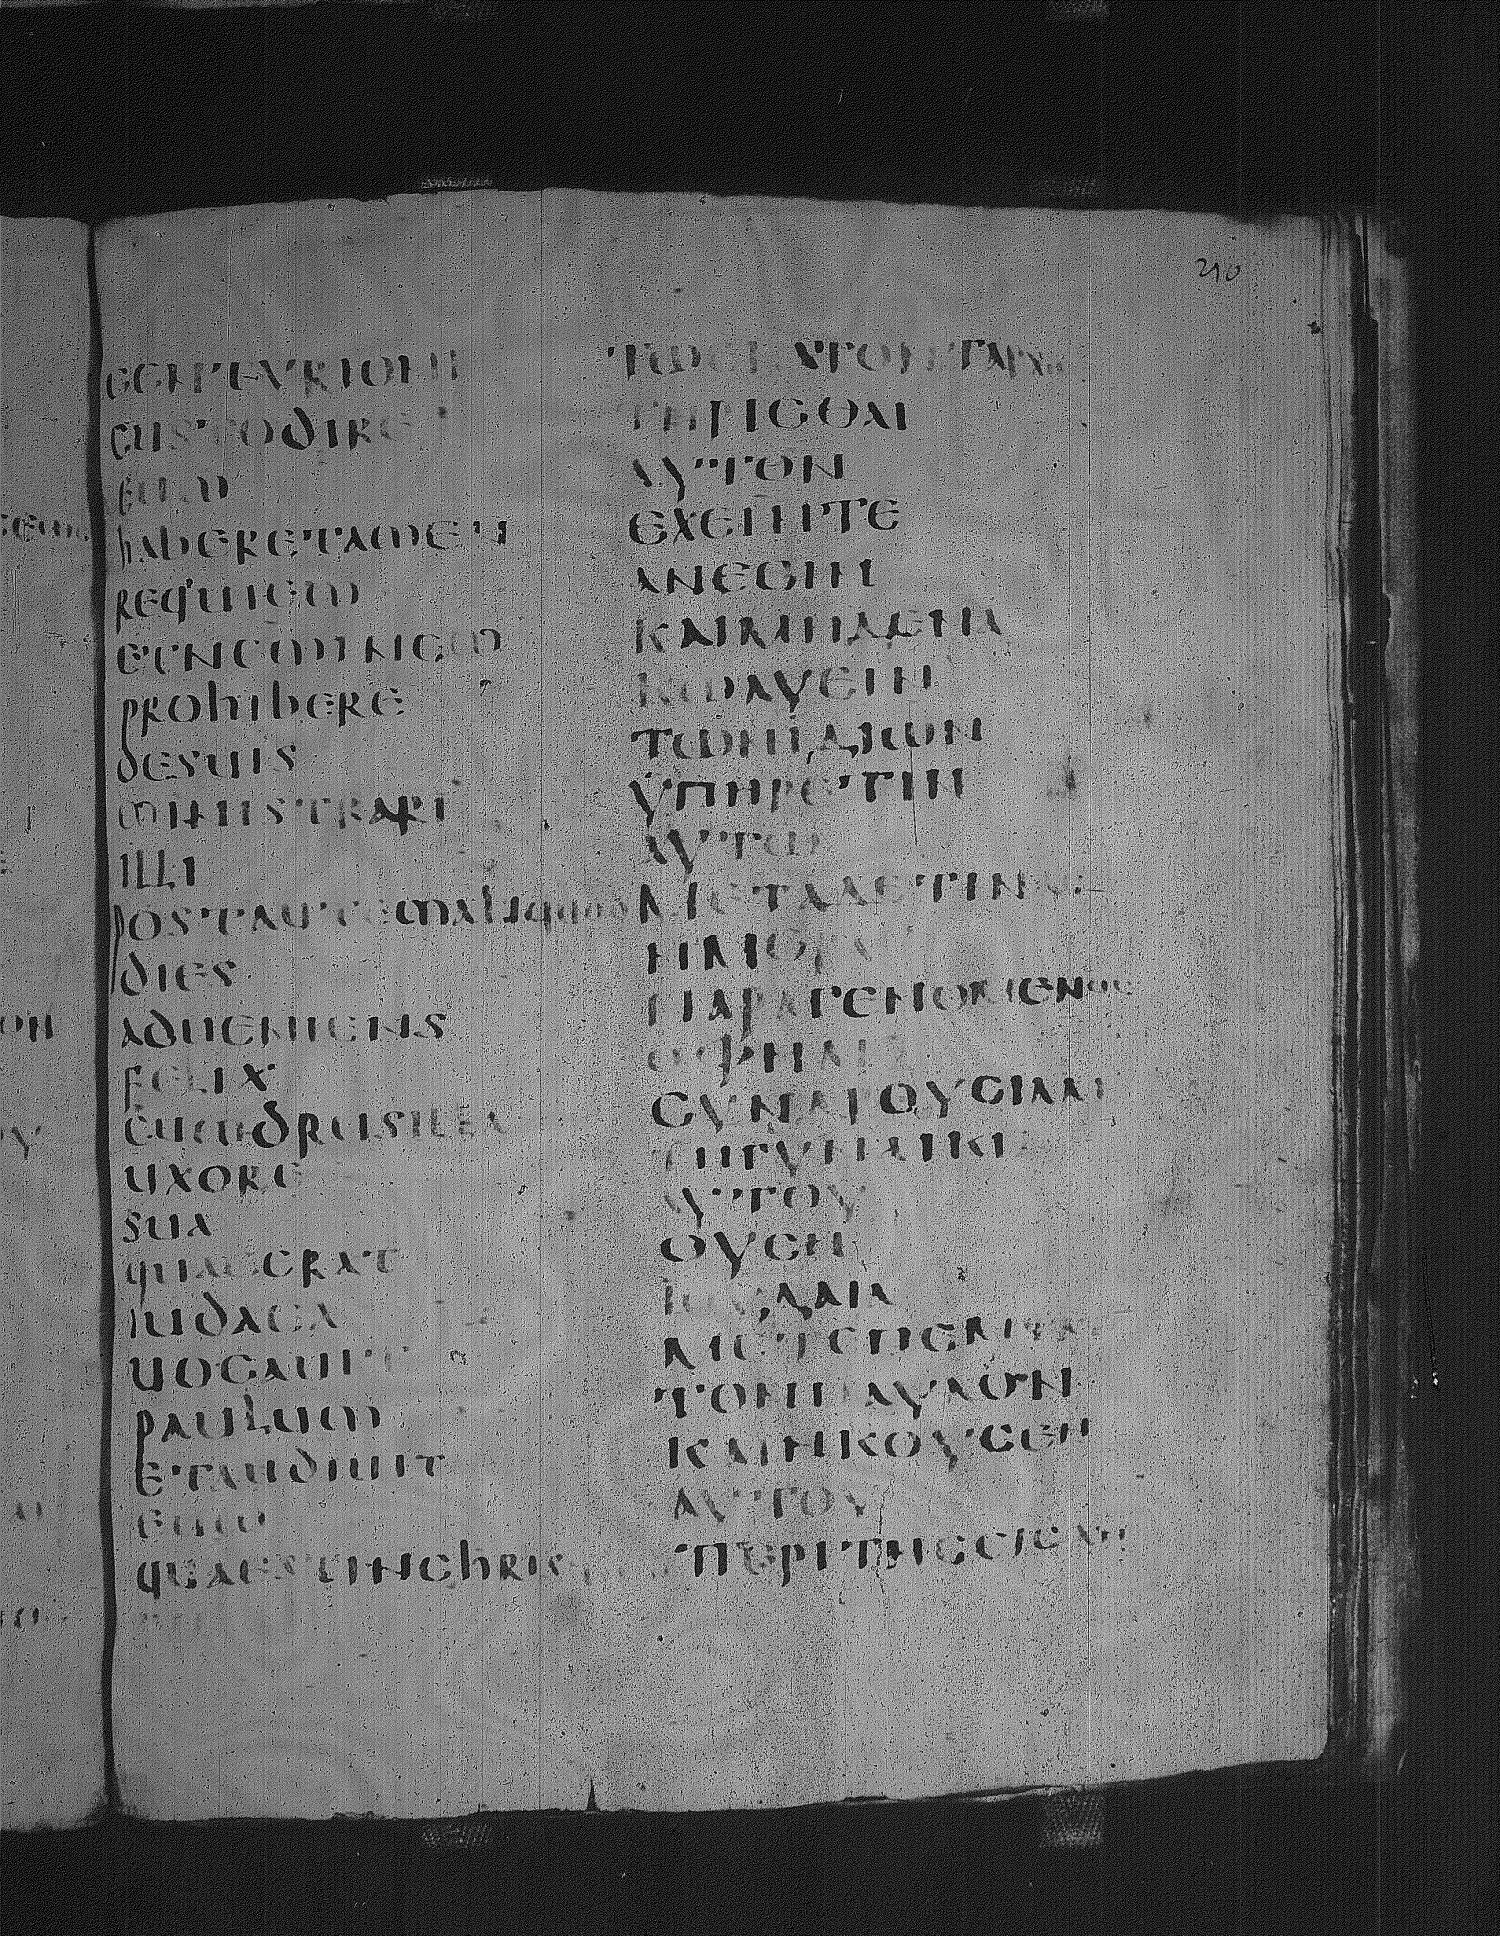 210
CENTURIONI
CUSTODIRE
EUM
hABERETAMEN
REQUIEM
ETNEMINEM
PROhIBERE
DESUIS
MINISTRARE
ILLI
POSTAUTEMALIQUOD
DIES
ADUENIENS
FELIX
CUMDRUSILLA
UXORE
SUA
QUAEERAT
IUDAEA
UOCAUIT
PAULUM
ETAUDIUIT
EUM
QUAEESTINChRIS
ΤΩΕΚΑΤΟΝΤΑΡΧΗ
ΤΗΡΙCΘΑΙ
ΑΥΤΟΝ
ΕΧΕΙΝΤΕ
ΑΝΕCΙΝ
ΚΑΙΜΗΔΕΝΑ
ΚΩΛΥΕΙΝ
ΤΩΝΙΔΙΩΝ
ΥΠΗΡΕΤΙΝ
ΑΥΤΩ
ΜΕΤΑΔΕΤΙΝΑC
ΗΜΕΡΑC
ΠΑΡΑΓΕΝΟΜΕΝΟC
ΟΦΗΛΙΞ
CΥΝΔΡΟΥCΙΛΛΗ
ΤΗΓΥΝΑΙΚΙ
ΑΥΤΟΥ
ΟΥCΗ
ΙΟΥΔΑΙΑ
ΜΕΤΕΠΕΜΨΑΤΟ
ΤΟΝΠΑΥΛΟΝ
ΚΑΙΗΚΟΥCΕΝ
ΑΥΤΟΥ
ΠΕΡΙΤΗCΕΙC